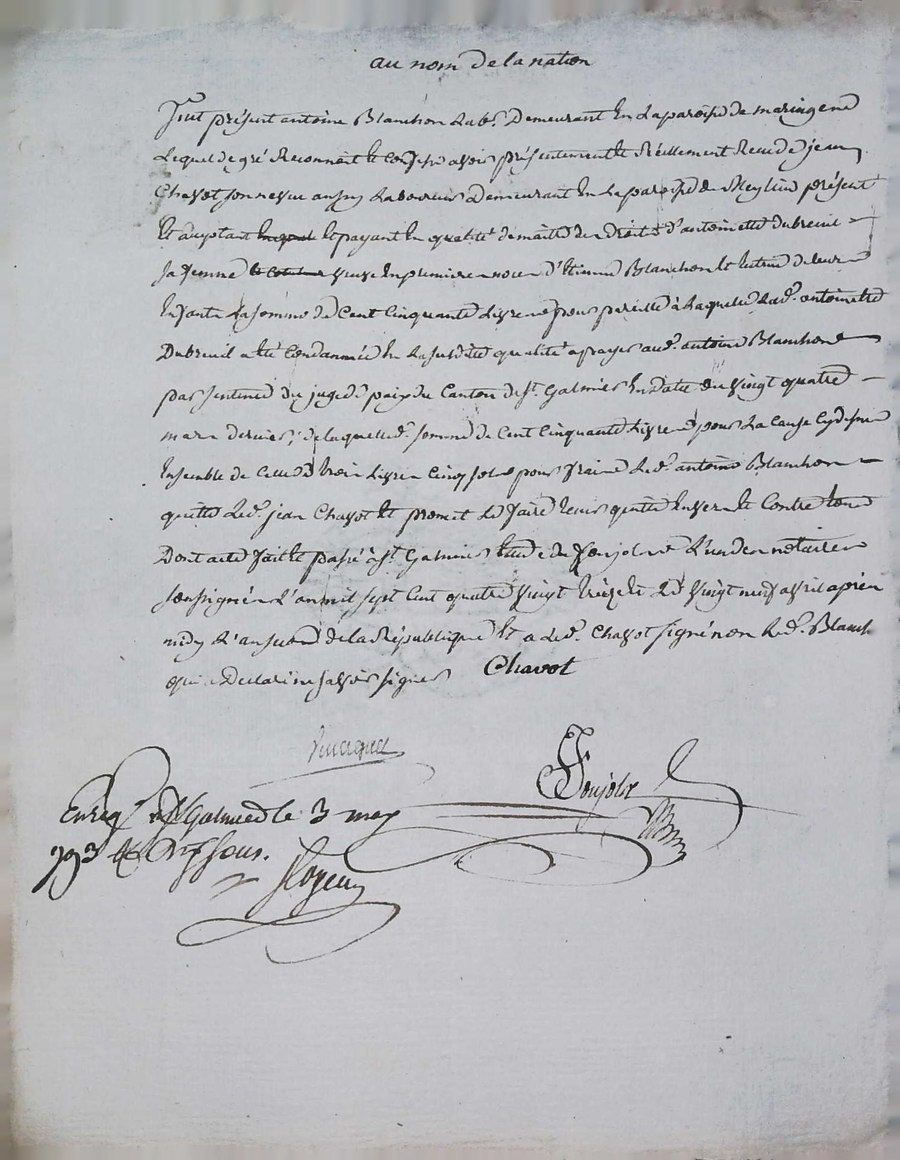 au nom de la nation
fut présent antoine Blanchon lab.r demeurant en la paroisse de maringes
lequel de gré reconnoit et confesse avoir présentement et réellement recu de jean
Chavot son neveu aussy laboureur demeurant en la paroisse de Meylieu présent
et acceptant et payant en qualité de maitre des droits d'antoinette dubreuil
sa femme veuve en premiere noce d'Etienne Blanchon et tutrice de leurs
Enfants la somme de Cent Cinquante livres pour pareille à laquelle lad.e antoinette
Dubreuil a été Condamnée en la susdite qualité a payer aud.t antoine Blanchon
par sentence du juge de paix du Canton de s.t Galmier en date du vingt quatre
mars dernier, de laquelle d.e somme de Cent Cinquante livres pour la Cause cy dessus
Ensemble de Celle de trois livres Cinq sols pour fraix led.t antoine Blanchon
quitte led.t jean Chavot et promet le faire tenir quitte envers et Contre tous
Dont acte fait et passé à s.t Galmier Etude de Soujolx l'un des notaires
soussignés l'an mil sept Cent quatre vingt treize et le vingt neuf avril après
midy l'an second de la République et a led.t Chavot signé non led.t Blanch.
qui a declaré ne savoir signer Chavot
Soujolx
Enreg.é à s.t Galmier le 3 may
793